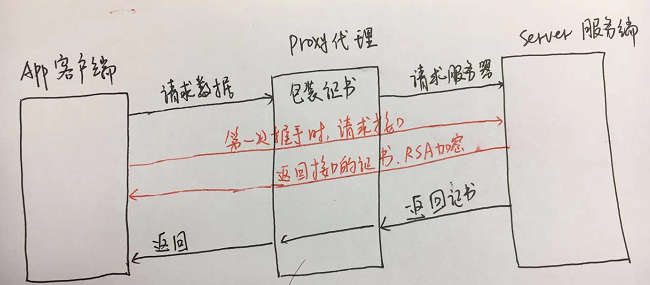 App 客户端
Proxy 代理
Server 服务端
请求数据
包装证书
请求服务器
第一次握手时,请求接口
返回接口的证书、RSA加密
返回证书
返回